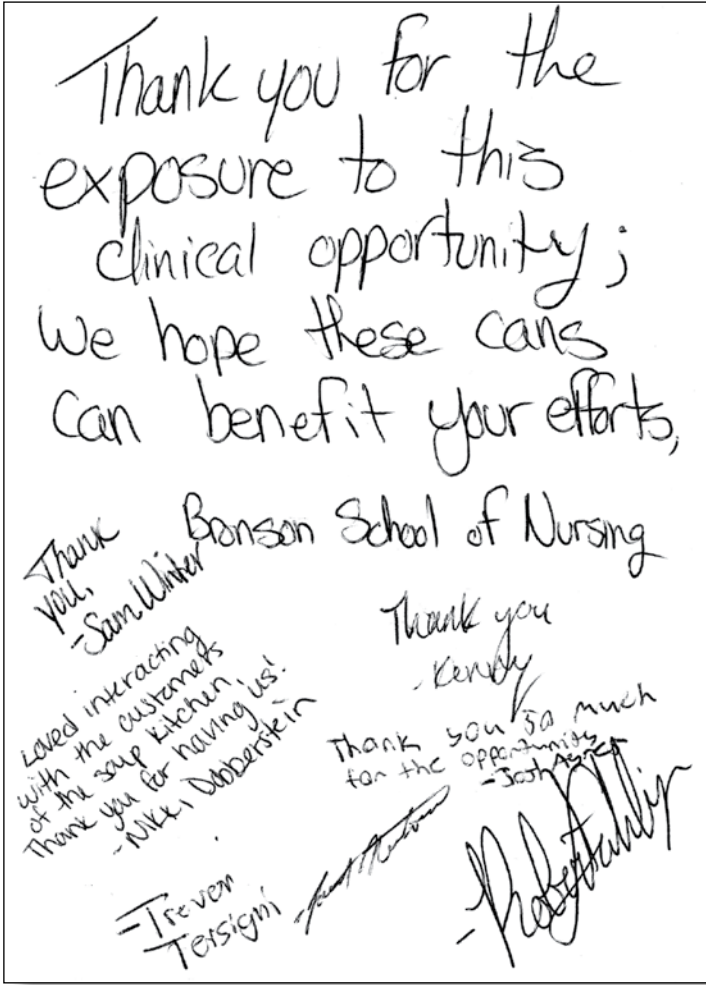 Thank you for the
exposure to this
clinical opportunity;
We hope these cans
can benefit your efforts,
Bronson School of Nursing
Thank
you,
-Sam Winter
Thank you
-Kenny
Loved interacting
with the customers
of the soup kitchen.
Thank you for having us!
-Nikki Dobberstein
Thank you so much
for the opportunity
-Josh
-Trever
Tersigni